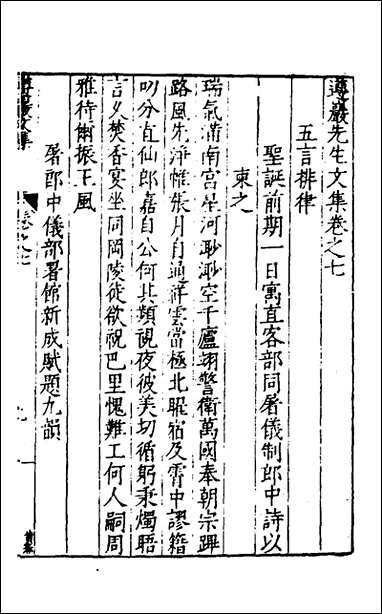 遵巖先生文集卷之七
五言排律
聖誕前期一日寓直客部同屠儀制郎中詩以
柬之
瑞氣滿南宮星河渺渺空千廬翊警衛萬國奉朝宗蹕
路風先淨帷張月自通祥雲當極北曜宿及霄中謬籍
叨分直仙郎嘉自公何其頻視夜彼美切循躬秉燭晤
言久焚香宴坐同岡陵徒欲祝巴里愧難工何人嗣周
雅待爾振王風
屠郎中儀部署館新成賦題九韻